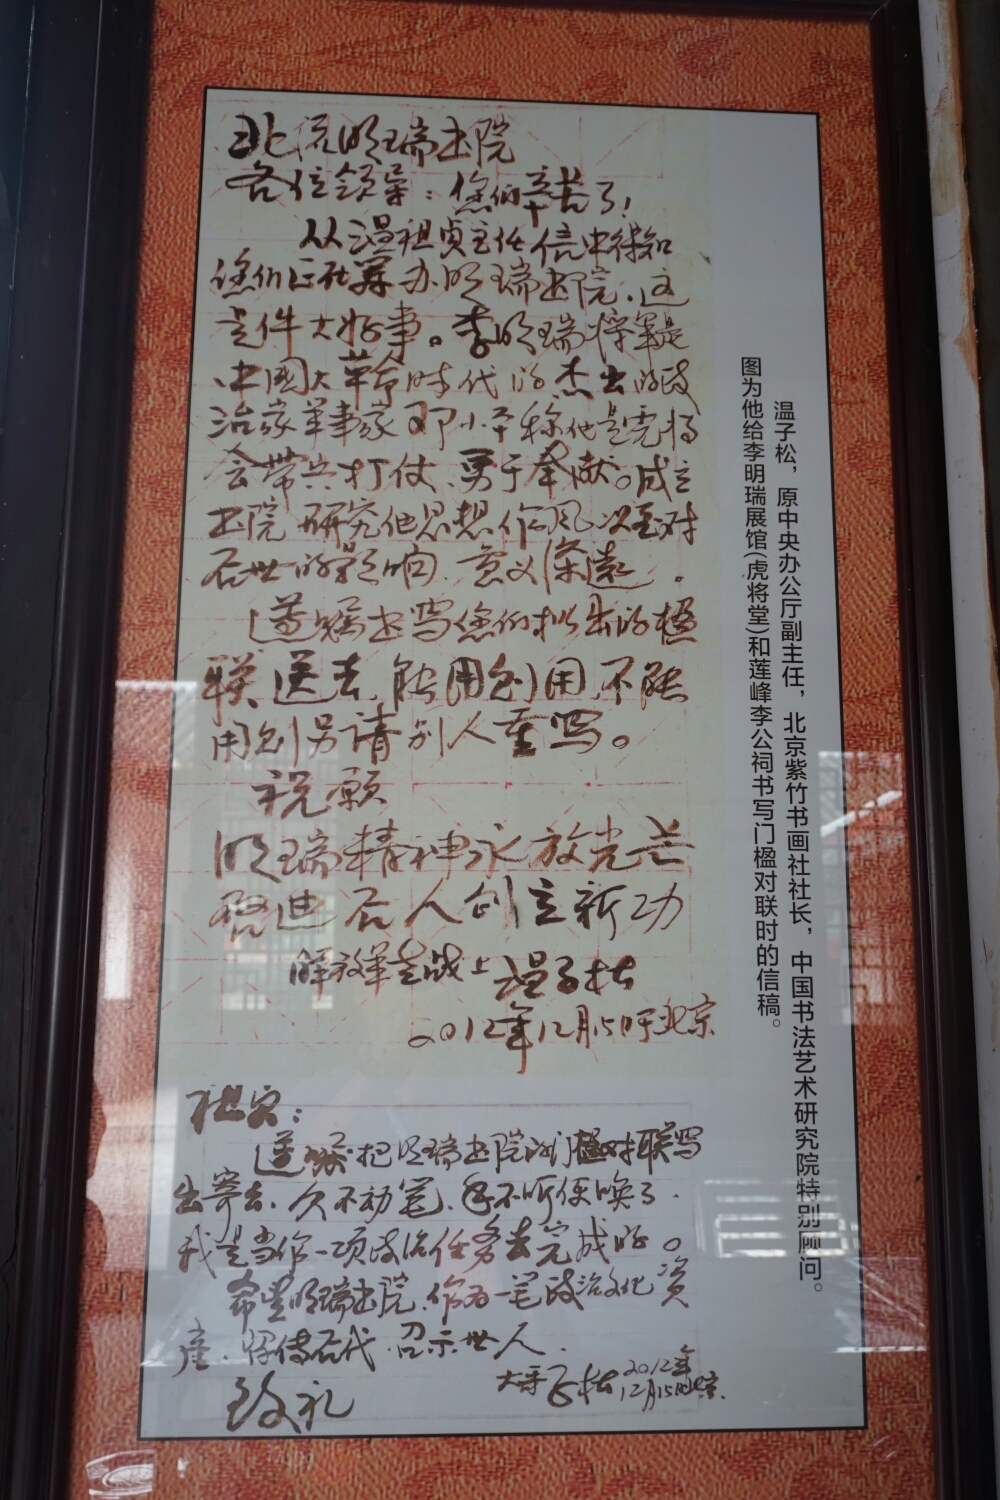 北流明瑞书院
各位领导：您们辛苦了！
从温祖贞主任信中得知
您们正在筹办明瑞书院，这
是件大好事。李明瑞将军是
中国大革命时代的杰出的政
治家军事家邓小平称他是虎将
会带兵打仗，勇于奉献。成立
书院研究他思想作风以至对
后世的影响，意义深远。
遵嘱书写您们拟出的楹
联送去能用则用不能
用则另请别人重写。
祝愿
明瑞精神永放光芒
启迪后人创立新功
解放军老战士温子松
2012年12月15日于北京
遵嘱把明瑞书院的门楹对联写
出寄去，久不动笔，手不听使唤了，
我是当作一项政治任务去完成的。
希望明瑞书院，作为一笔政治文化资
产，留传后代，召示世人，
致礼
大哥子松2012年
12月15日北京
温子松，原中央办公厅副主任，北京紫竹书画社社长，中国书法艺术研究院特别顾问。
图为他给李明瑞展馆(虎将堂)和莲峰李公祠书写门楹对联时的信稿。